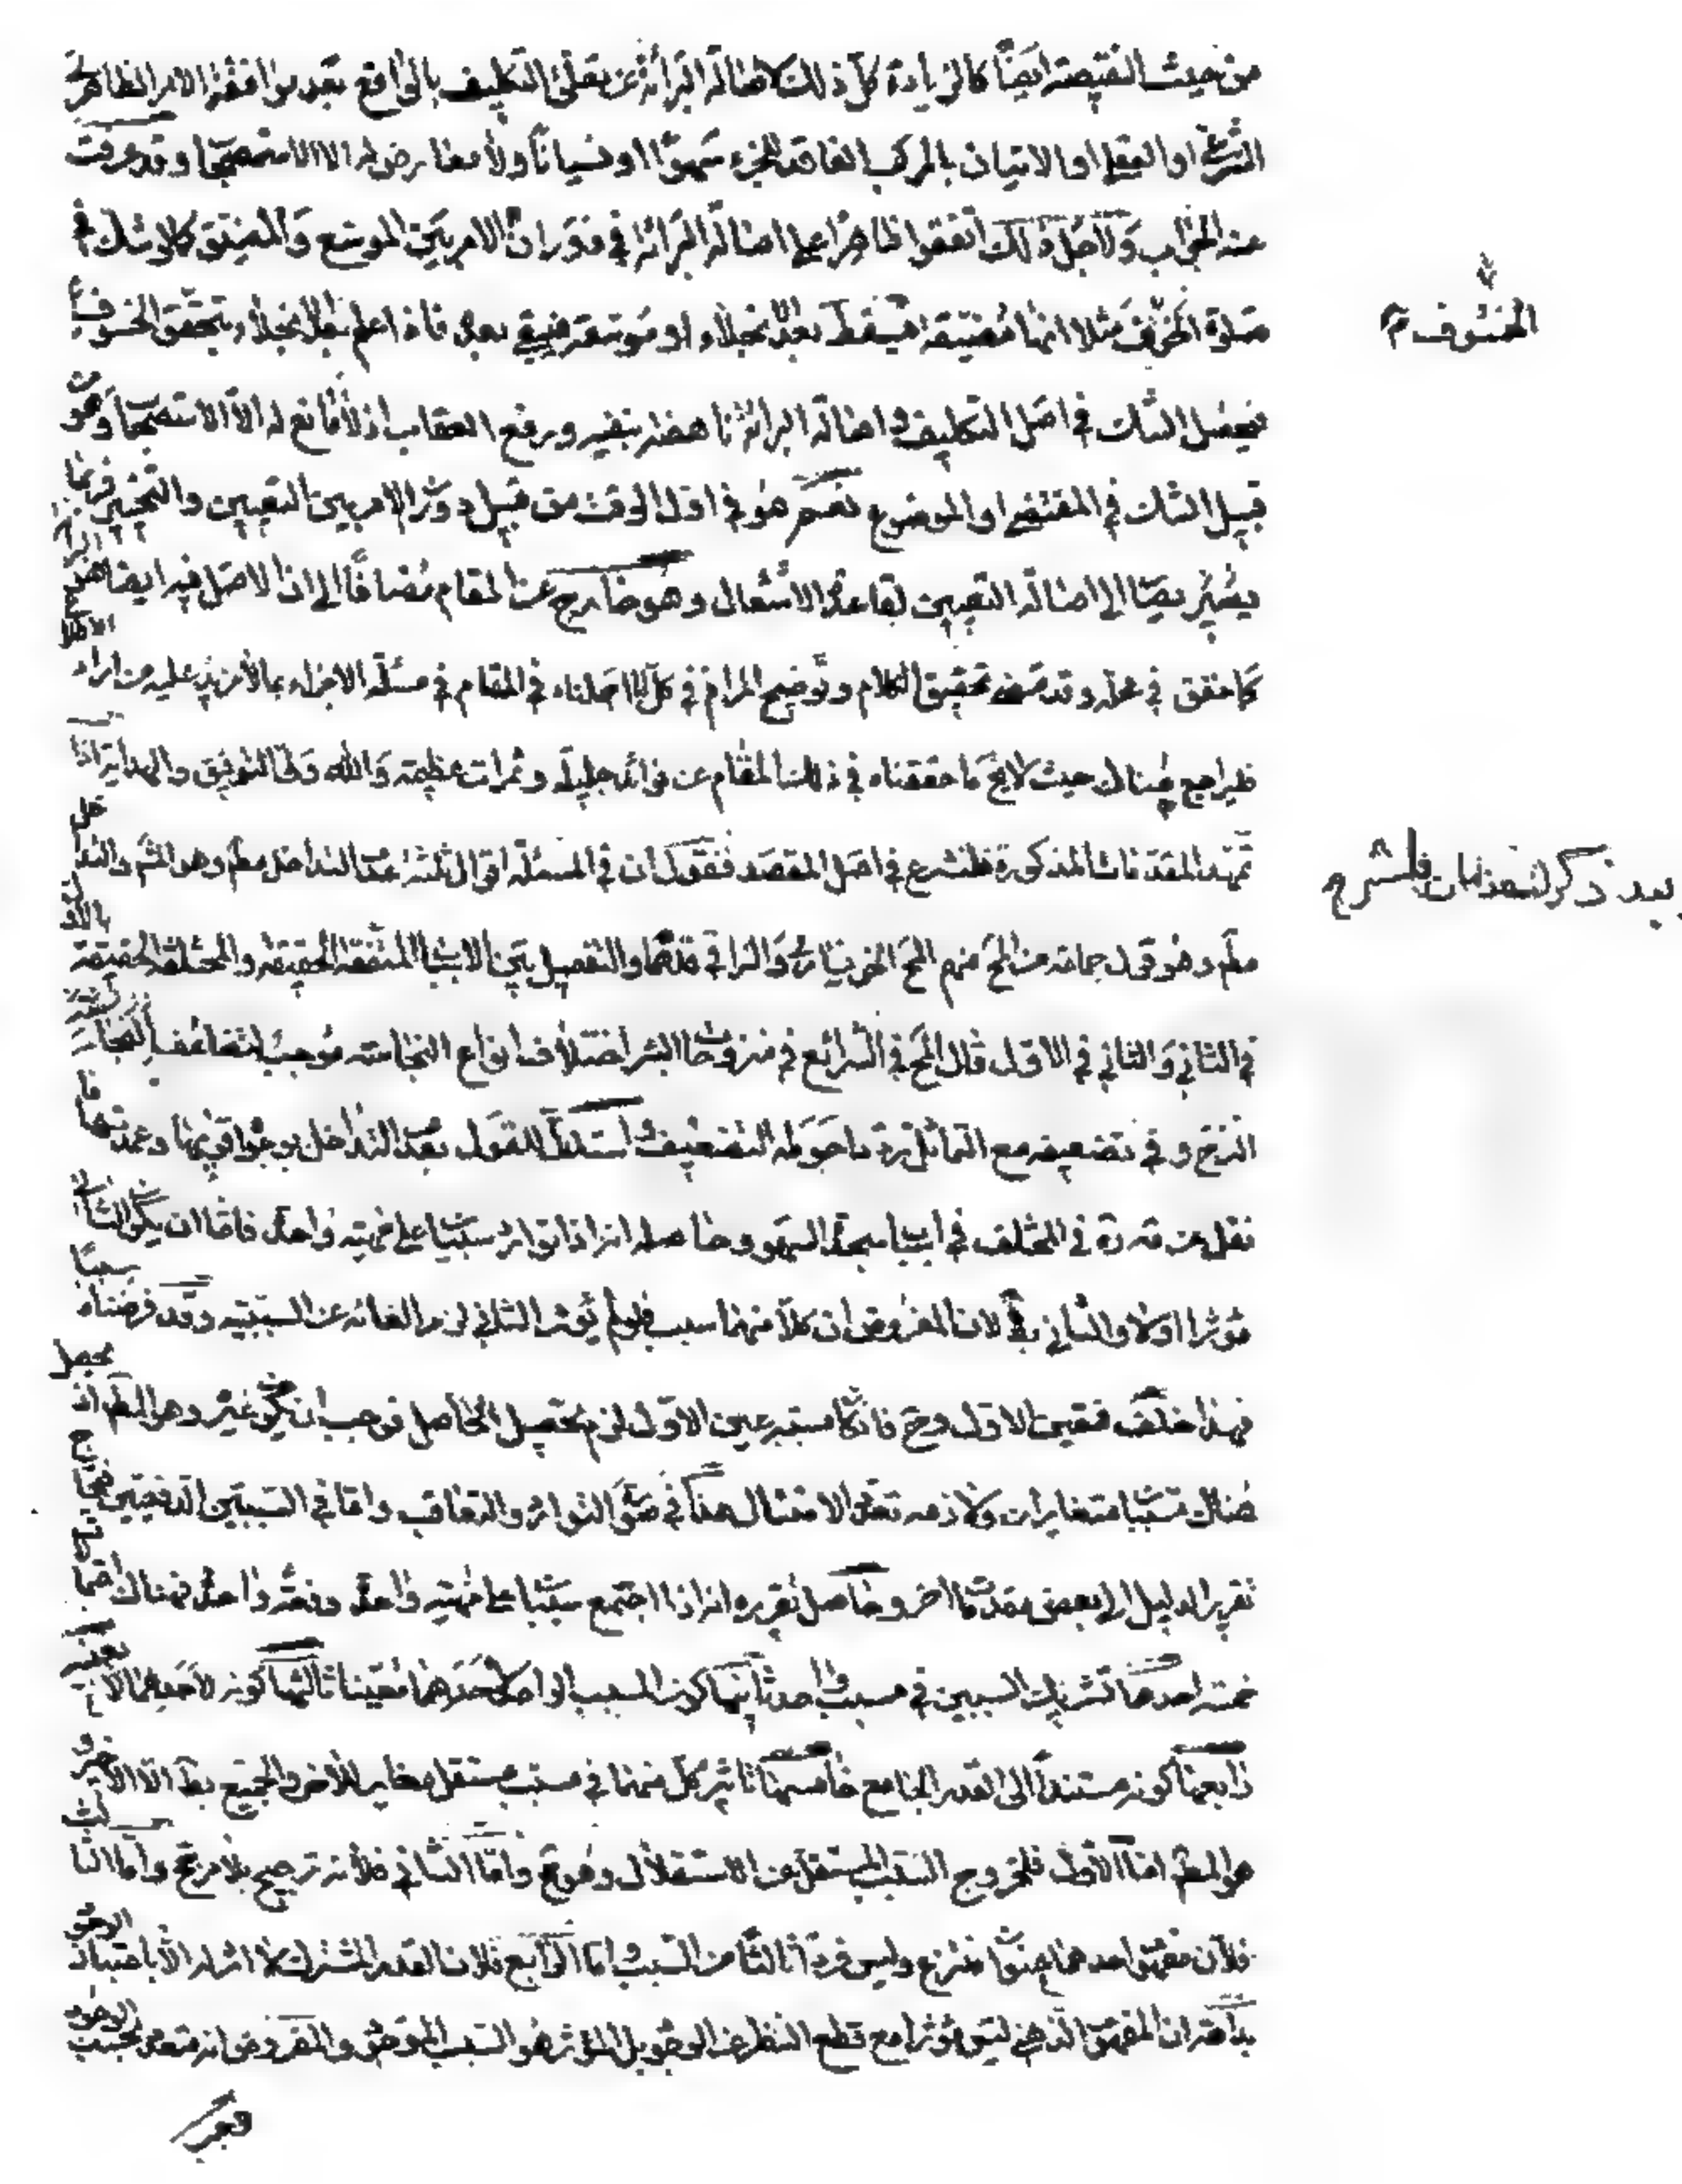 من حيث النقيصة ايضًا كالزيادة كل ذلك لاصالة البرائة عن تعلق التكليف بالواقع بعد موافقة الامر الظاهري
الشرعي او العقلي او الاتيان بالمركب الفاقد للجزء سهوًا او نسيانًا ولا معارض له الا الاستصحاب وقد عرفت
عنه الجواب ولاجل ذلك اتفقوا ظاهرًا على اصالة البرائة في دوران الامر بين الموسع والمضيق كالاشك في
صلوة الخسوف مثلا انها مضيقة فيسقط بعد الانجلاء او موسعة فيبقى بعد فاذا علم بعد الانجلاء بتحقق الخسوف
الخسوف م
فيحصل الشك في اصل التكليف واصالة البرائة ناهضة بنفيه ورفع العقاب اذ لا مانع له الا الاستصحاب وهو من
قبيل الشك في المقتضي او الموضوع نعم هو في اول الوقت من قبيل دوران الامر بين التعيين والتخيير فربما
يصير الى اصالة التعيين لقاعدة الاشتغال وهو خارج عن المقام مضافًا الى ان الاصل فيه ايضا هو
كما حقق في محله وقد مضى تحقيق الكلام وتوضيح المرام في كل ما اجملناه في المقام في مسئلة الاجزاء بما لا مزيد عليه من اراد
فليراجع هناك حيث لا يخ ما حققناه في ذلك المقام عن فوائد جليلة وثمرات عظيمة والله ولي التوفيق والهداية اذا
تمهد المقدمات المذكورة فلنشرع في اصل المقصد فنقول ان في المسئلة اقوال ثلثة عدم التداخل مطم وهو المشهور والتداخل
بعد ذكر المقدمات فلنشرع
مطم وهو قول جماعة من المح منهم المح الخونساري والنراقي والتفصيل بين الاسباب المتفقة الحقيقة والمختلفة الحقيقة بالاول
في الثاني والثاني في الاول قال المح في الشرائع في منزوحات البئر اختلاف انواع النجاسة موجب لتضاعف النزح
وفي تضعيفه مع التماثل تردد احوطه التضعيف استدل للقول بعدم التداخل بوجوه اقويها وعمدتها ما
نقل عن قده في المختلف في اسباب سجدة السهو وحاصله انه اذا توارد سببان على مهية واحدة فاما ان يكون الثاني
مؤثرا اولا والثاني بط لان المفروض ان كلا منهما سبب فلو لم يؤثر الثاني لزم الغائه عن السببية وقد فرضناه سببًا
فهذا خلف فتعين الاول وح فان كان مسببه عين الاول لزم تحصيل الحاصل فوجب ان يكون غيره وهو المطم اذ يحصل
هناك مسببات متغايرات ولازمه تعدد الامتثال هذا في صورة التوارد والتعاقب واما في السببين الدفعيين فيحتاج
تقرير الدليل الى بعض مقدمات اخر وحاصل تقريره انه اذا اجتمع سببان على مهية واحدة دفعة واحدة فهناك احتمالات
خمسة احدها تشريك السببين في مسبب واحد ثانيها كون المسبب الواحد لاحدهما معينا ثالثها كونه لاحدهما لا بعينه
رابعها كونه مستندًا الى القدر الجامع خامسها تاثير كل منهما في مسبب مستقل مغاير للاخر والجميع بط الا الاخير و
هو المطم اما الاول فلخروج السبب المستقل عن الاستقلال وهو مح واما الثاني فلأنه ترجيح بلا مرجح واما الثالث
فلأن مفهوم احدهما عنوان منتزع وليس فردًا ثالثًا من السبب واما الرابع فلان القدر المشترك لا اثر له الا باعتبار الوجود
بداهة ان المفهوم الذهني ليس مؤثرا مع قطع النظر عن الوجود بل المؤثر هو السبب الموجود والمفروض انه متعدد بحسب الوجود